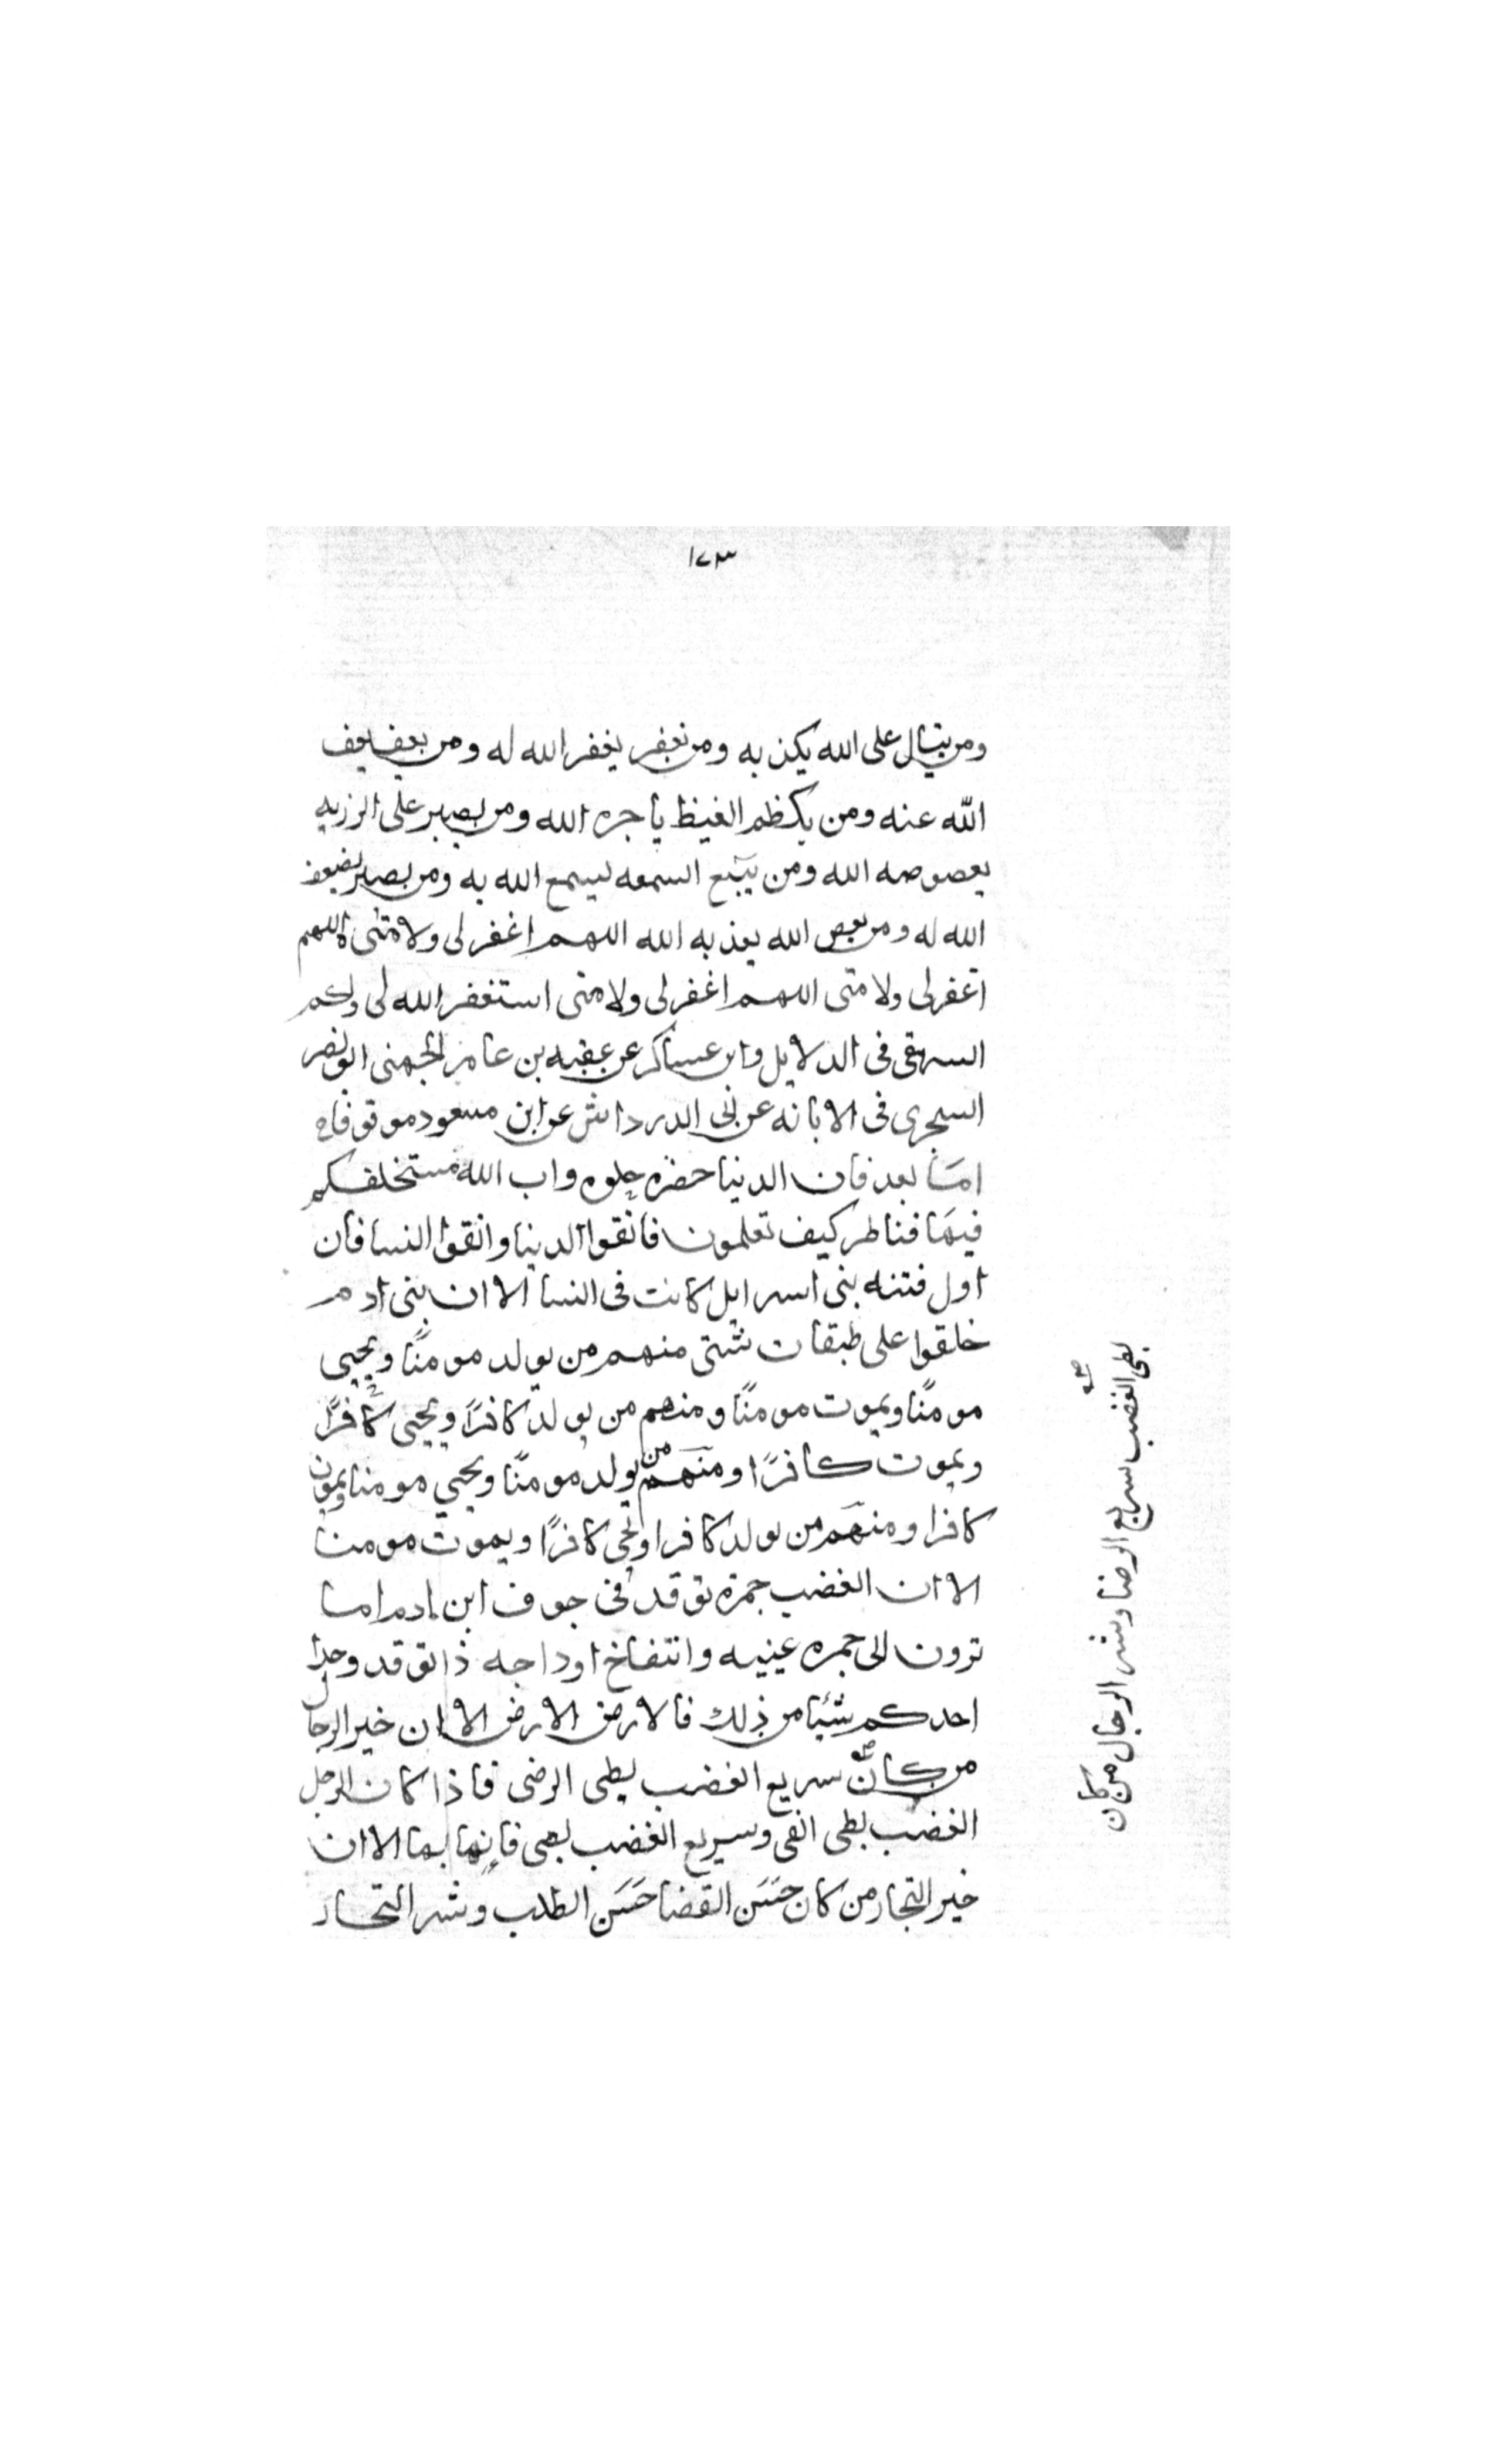 ١٧٣
ومن يتال على الله يكذبه ومن يغفر يغفر الله له ومن يعف يعف
الله عنه ومن يكظم الغيظ ياجره الله ومن يصبر على الرزيه
يعوضه الله ومن يتبع السمعه يسمع الله به ومن يصبر يضعف
الله له ومن يعص الله يعذبه الله اللهم اغفر لى ولامتى اللهم
اغفر لى ولامتى اللهم اغفر لى ولامتى استغفر الله لى ولكم
البيهقى فى الدلايل وابن عساكر عن عقبه بن عامر الجهنى ابو نصر
السجزى فى الابانه عن ابى الدردا ش عن ابن مسعود موقوفا
امَّا بعد فان الدنيا خضره حلوه وان الله مستخلفكم
فيها فناظر كيف تعلمون فاتقوا الدنيا واتقوا النسا فان
اول فتنه بنى اسرايل كانت فى النسا الا ان بنى ادم
خلقوا على طبقات شتى منهم من يولد مومنًا ويحيى
مومنًا ويموت مومنًا ومنهم من يولد كافرًا ويحيى كافرًا
ويموت كافرًا ومنهم من يولد مومنًا ويحيي مومنا ويموت
كافرا ومنهم من يولد كافرا ويحيى كافرًا ويموت مومنا
الا ان الغضب جمرة توقد فى جوف ابن ادم اما
ترون الى حمره عينيه وانتفاخ اوداجه فاذا وجد
احدكم شيًا من ذلك فالارض الارض الا ان خير الرجال
من كان سريع الغضب بطى الرضى فاذا كان الرجل
الغضب بطى الفى وسريع الغضب فانها بها الا ان
خير التجار من كان حَسَن القضا حَسَن الطلب وشر التجار
بطى الغضب سريع الرضا وشر الرجال من كان